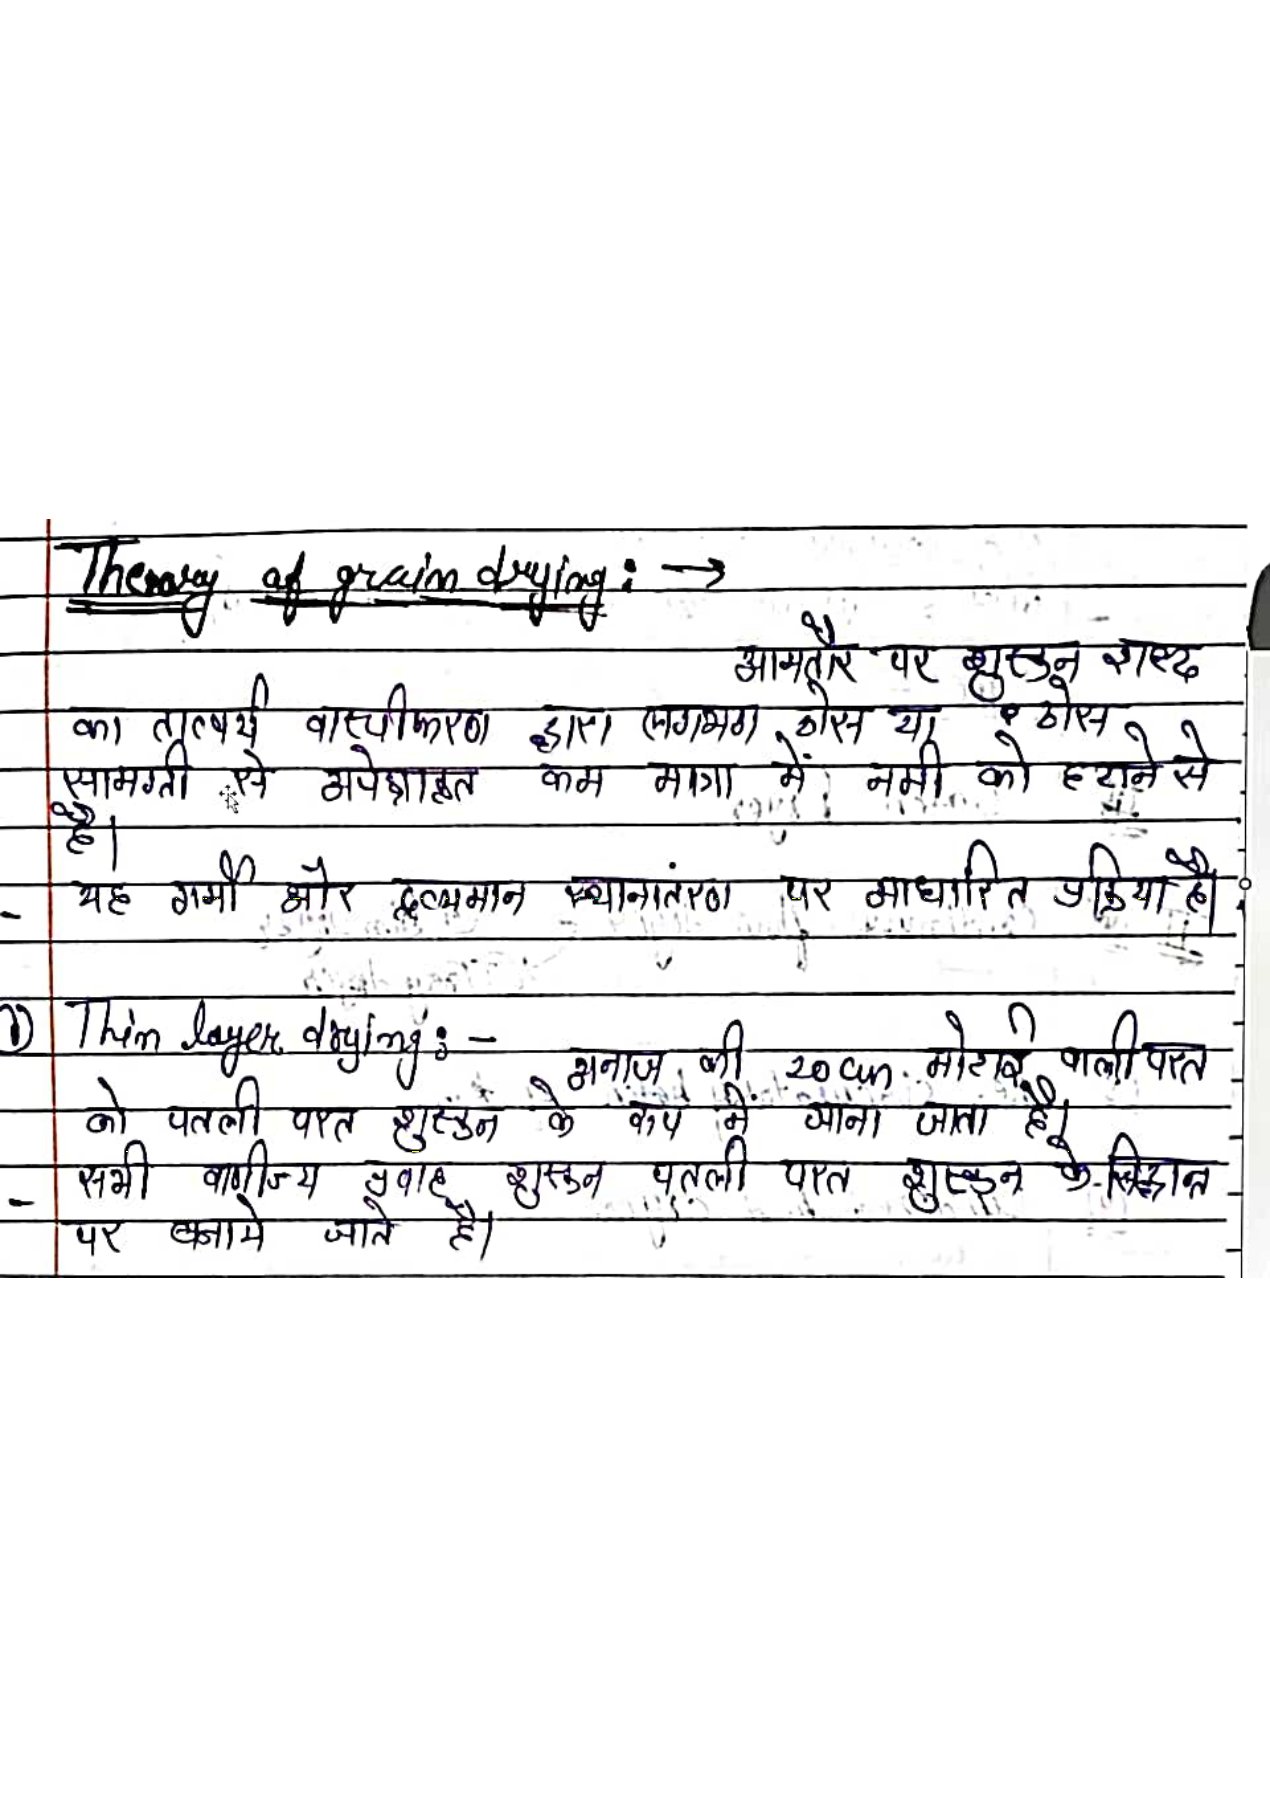 Theroray of grain drying : →
आमतौर पर शुस्कन शब्द
का तात्पर्य वास्पीकरण द्वारा लगभग ठोस या ठोस
सामग्री से अपेक्षाकृत कम मात्रा में नमी को हटाने से
है।
- यह गर्मी और द्रव्यमान स्थानातंरण पर आधारित प्रक्रिया है।
① Thin layer drying : -
अनाज की 20 cm. मोटाई वाली परत
को पतली परत शुस्कन के रूप में जाना जाता है।
- सभी वाणीज्य प्रवाह शुस्कन पतली परत शुस्कन के सिद्धान्त
पर बनाये जाते है।